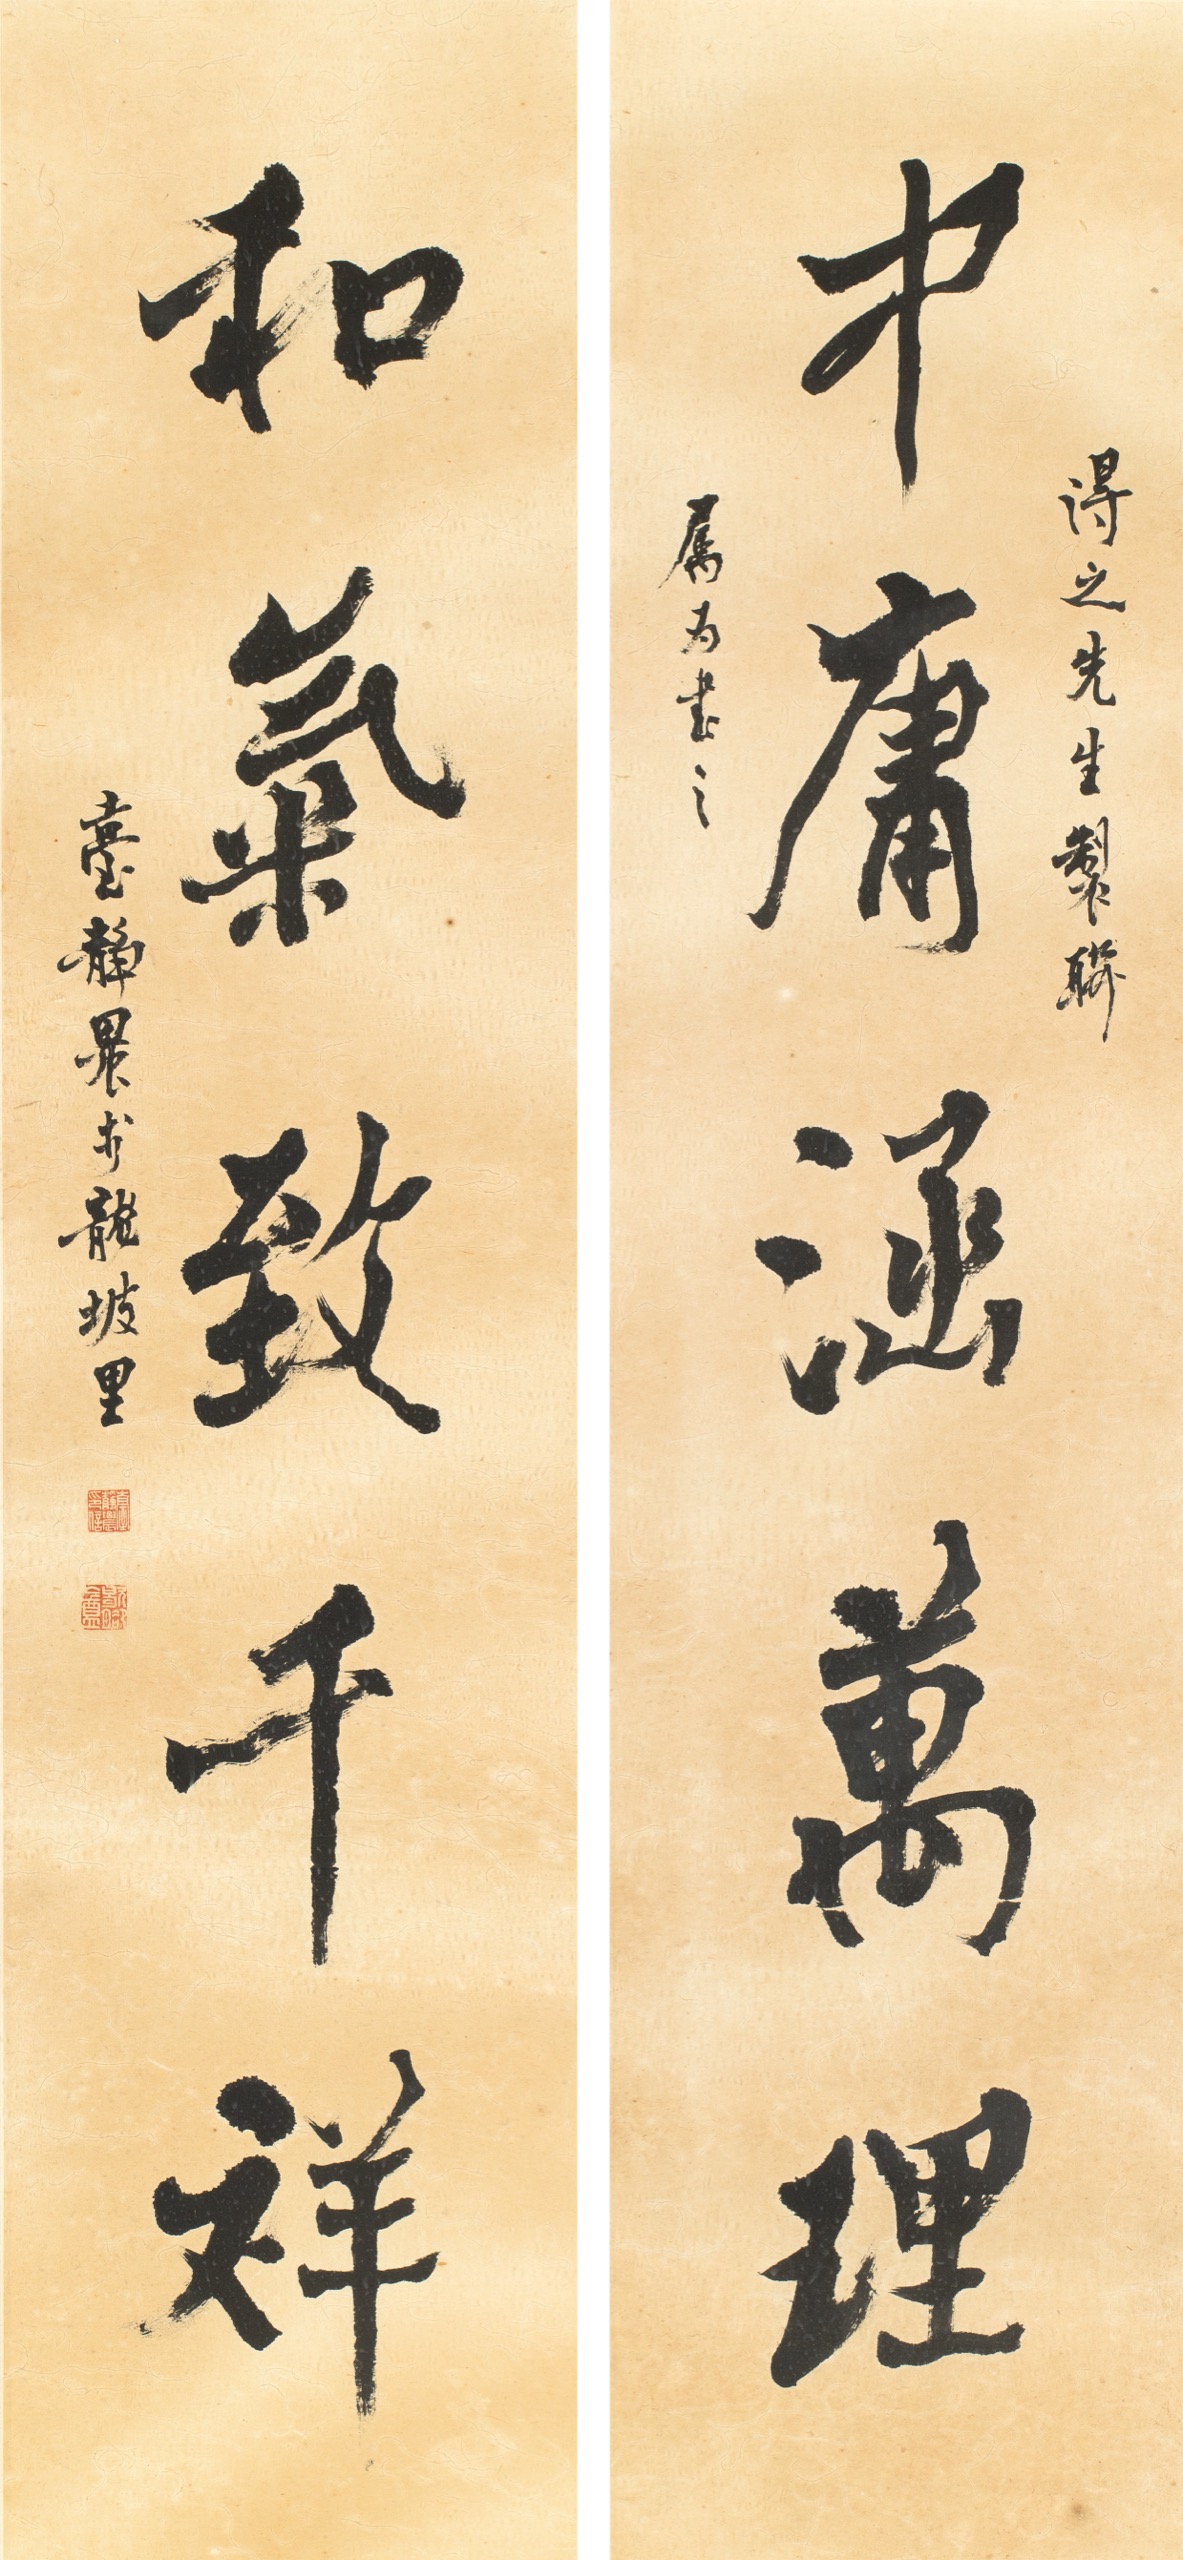 中庸涵萬理
得之先生製聯
屬為書之
和氣致千祥
臺靜農於龍坡里